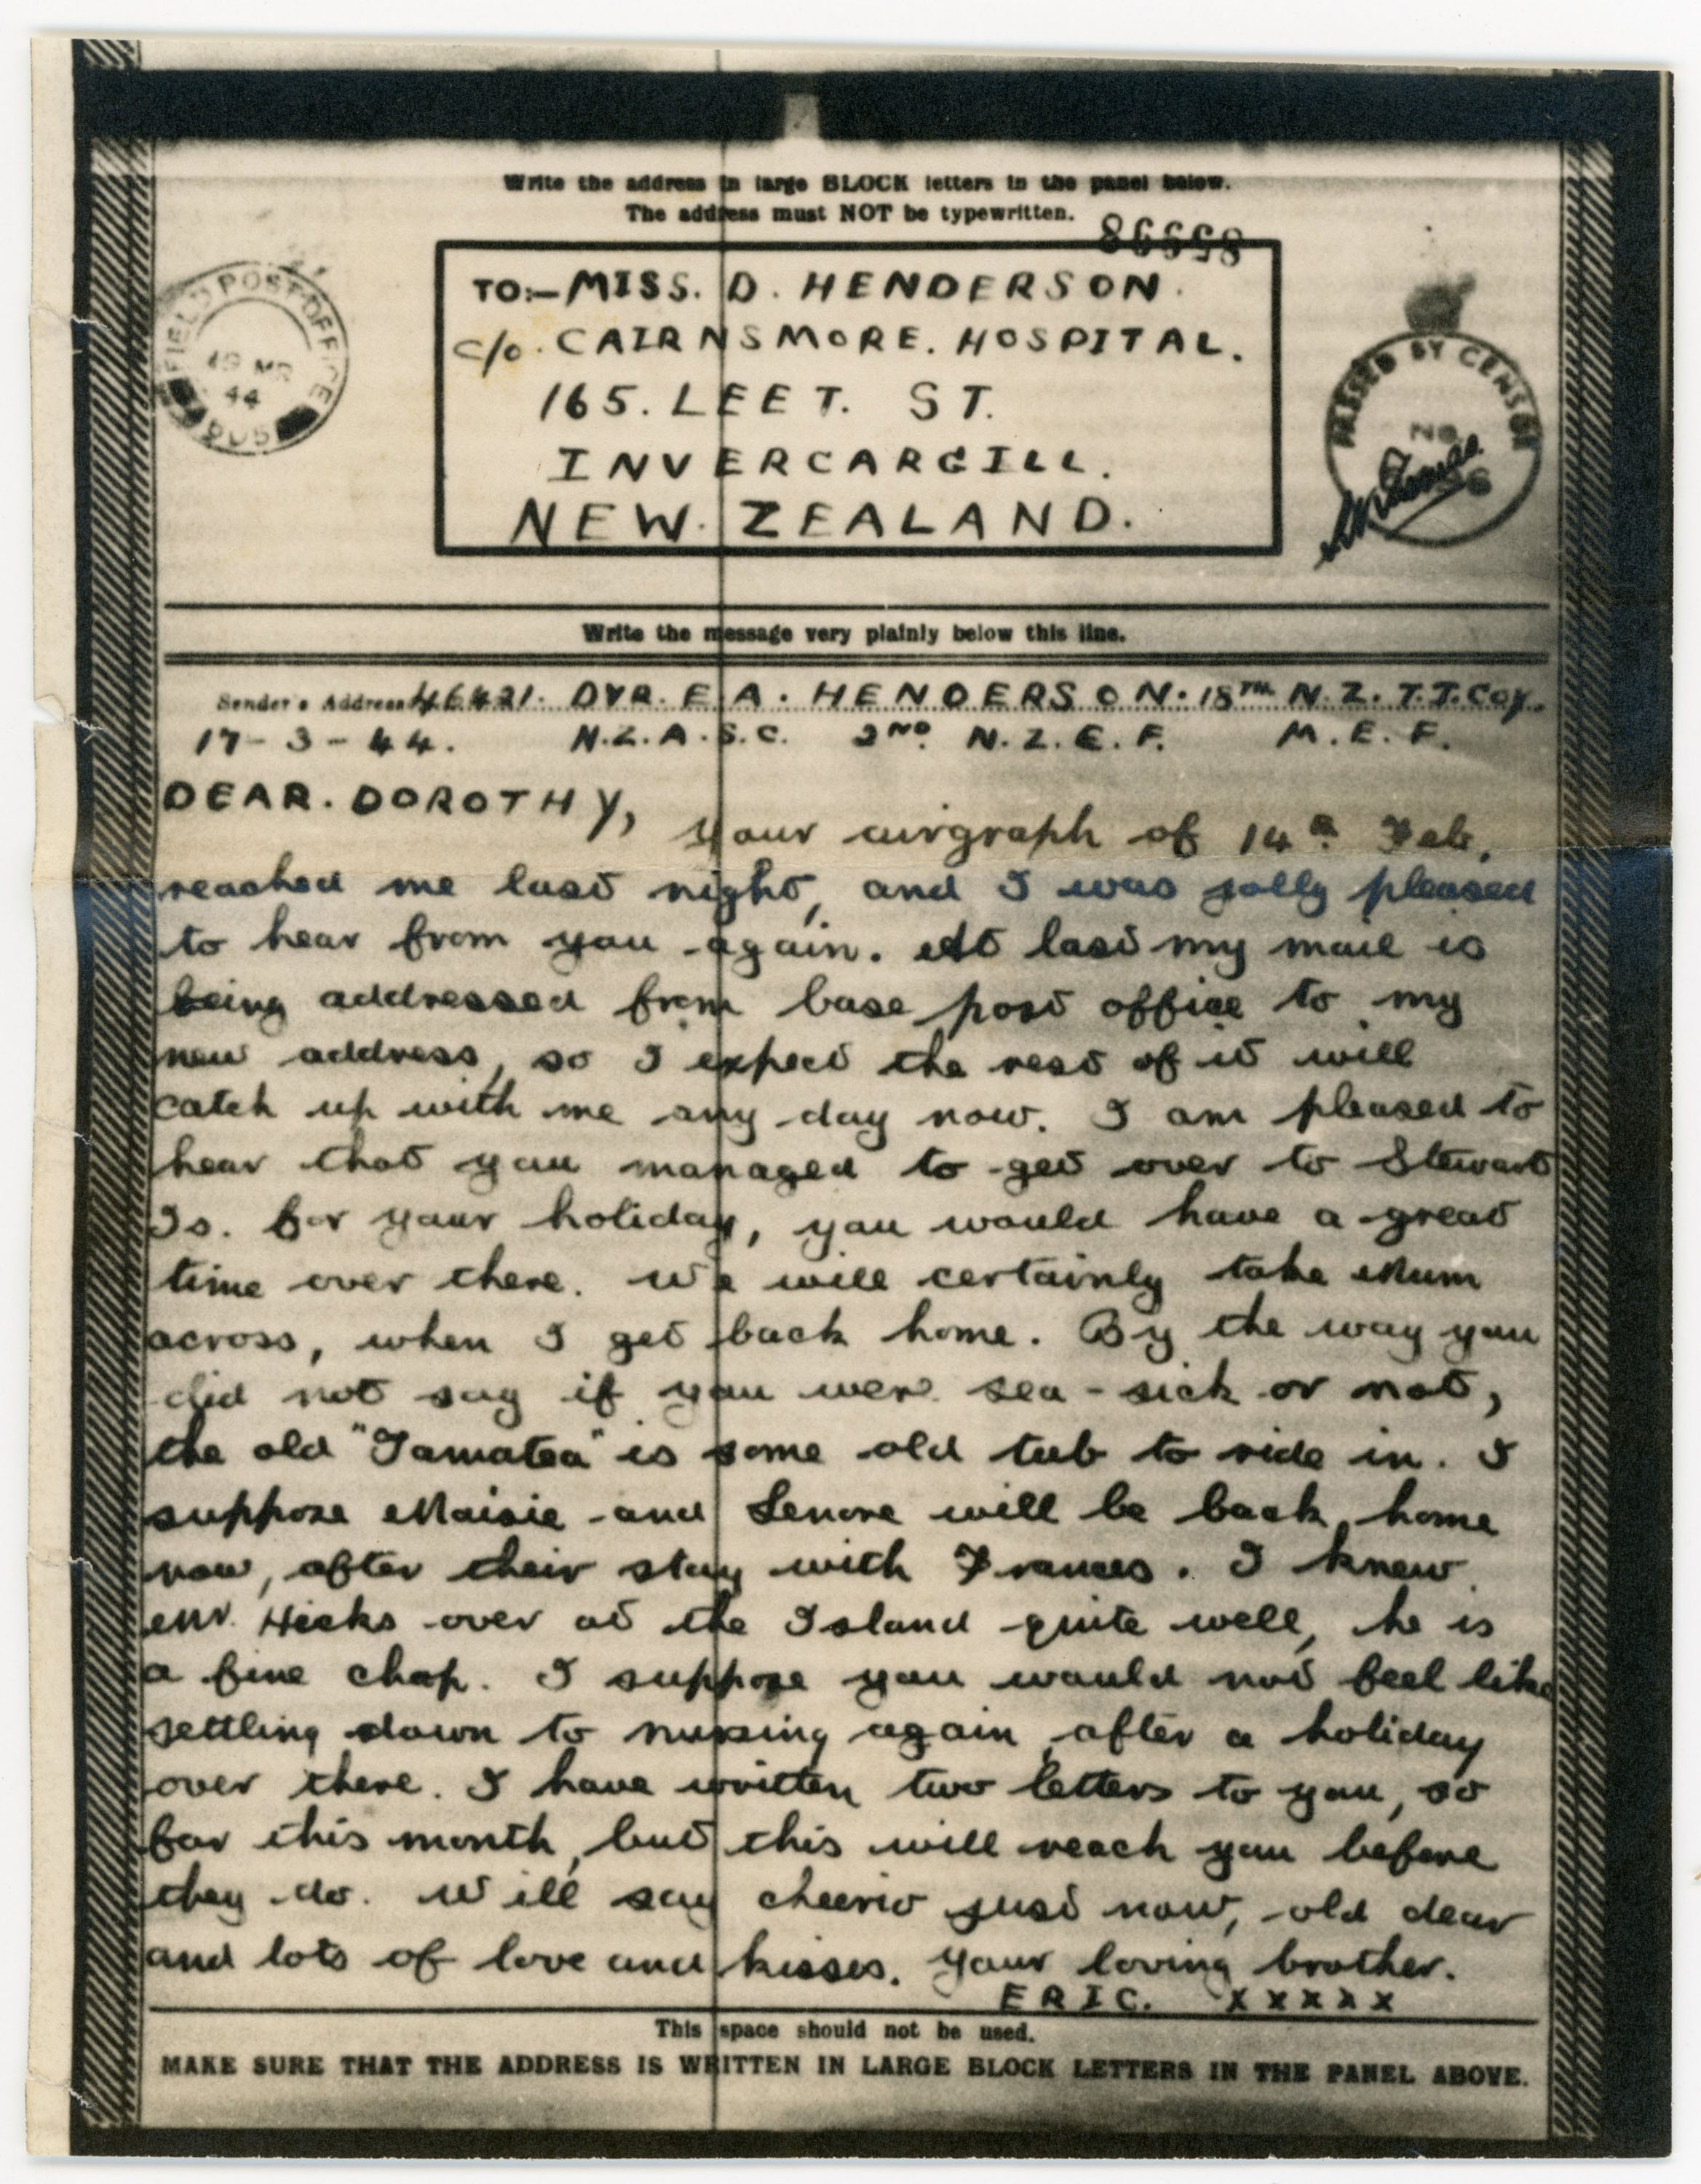 Write the address in large BLOCK letters in the panel below.
The address must NOT be typewritten.
85998
FIELD POST OFFICE
19 MR
44
TO:- MISS. D. HENDERSON.
c/o. CAIRNSMORE. HOSPITAL.
165. LEET. ST.
INVERCARGILL.
NEW. ZEALAND.
PASSED BY CENSOR
No
Write the message very plainly below this line.
Sender's Address 46421. DVR. E. A. HENDERSON. 18TH N.Z. T.T. Coy.
17-3-44. N.Z.A.S.C. 2ND. N.Z.E.F. M.E.F.
DEAR. DOROTHY,
your airgraph of 14th Feb,
reached me last night, and I was jolly pleased
to hear from you again. At last my mail is
being addressed from base post office to my
new address, so I expect the rest of it will
catch up with me any day now. I am pleased to
hear that you managed to get over to Stewart
Is. for your holiday, you would have a great
time over there. We will certainly take Mum
across, when I get back home. By the way you
did not say if you were sea-sick or not,
the old "Tamatea" is some old tub to ride in. I
suppose Maisie and Lenore will be back home
now, after their stay with Frances. I knew
Mr. Hicks over at the Island quite well, he is
a fine chap. I suppose you would not feel like
settling down to nursing again, after a holiday
over there. I have written two letters to you, so
far this month, but this will reach you before
they do. Will say cheerio just now, old dear
and lots of love and kisses. Your loving brother.
ERIC. x x x x x
This space should not be used.
MAKE SURE THAT THE ADDRESS IS WRITTEN IN LARGE BLOCK LETTERS IN THE PANEL ABOVE.